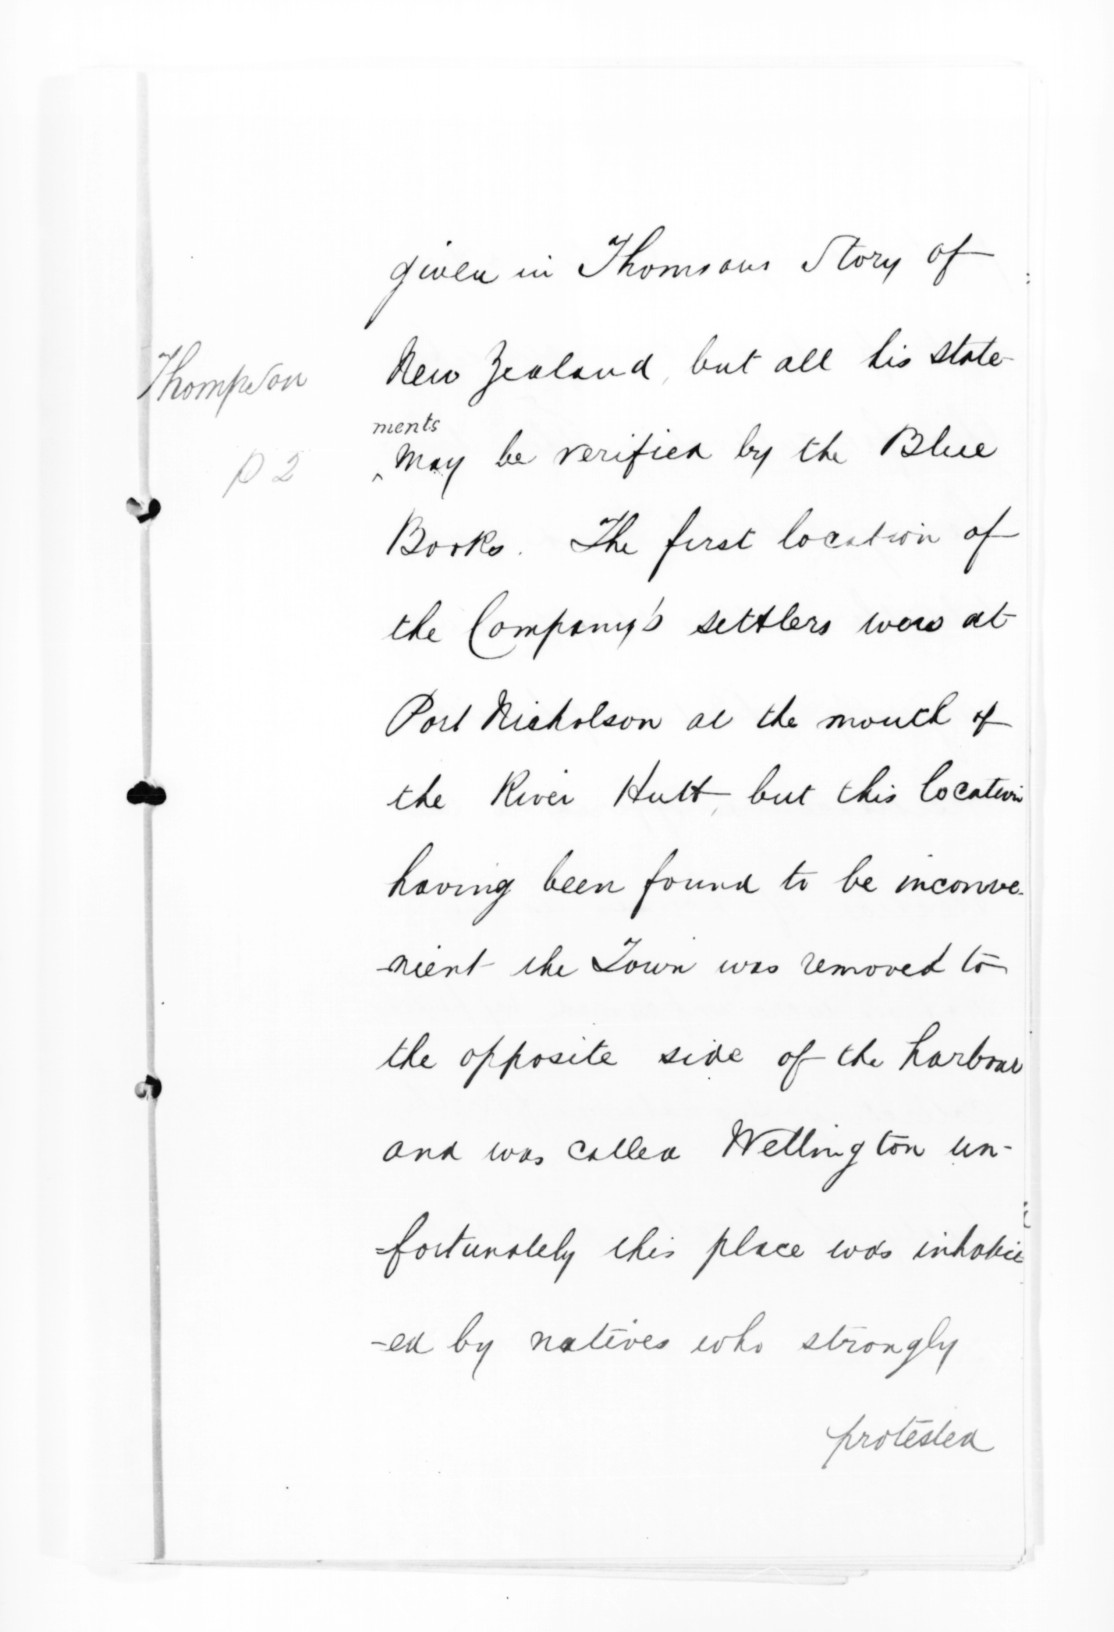 given in Thomsons Story of
New Zealand, but all his state-
Thompson
ments
^ may be verified by the Blue
p 2
Books. The first location of
the Company's settlers were at
Port Nicholson at the mouth of
the River Hutt, but this location
having been found to be inconve-
-nient the Town was removed to
the opposite side of the harbour
and was called Wellington un-
=fortunately this place was inhabit
-ed by natives who strongly
protested